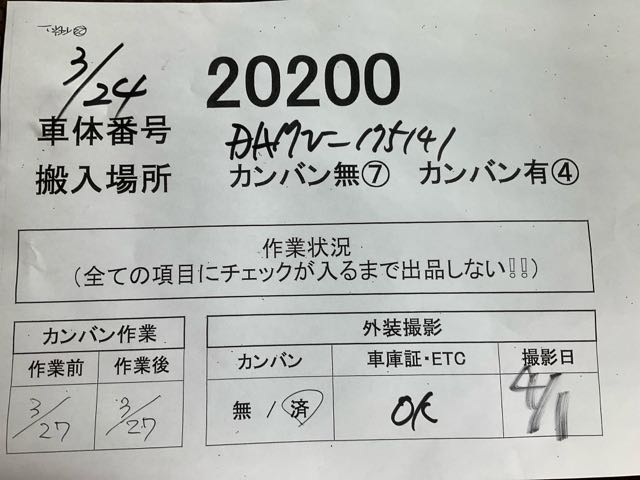 3/24
20200
車体番号 DAMV-175141
搬入場所 カンバン無⑦ カンバン有④
作業状況
(全ての項目にチェックが入るまで出品しない!!)
カンバン作業
作業前 作業後
3/27 3/27
外装撮影
カンバン 車庫証・ETC 撮影日
無 / 済 OK 4/1